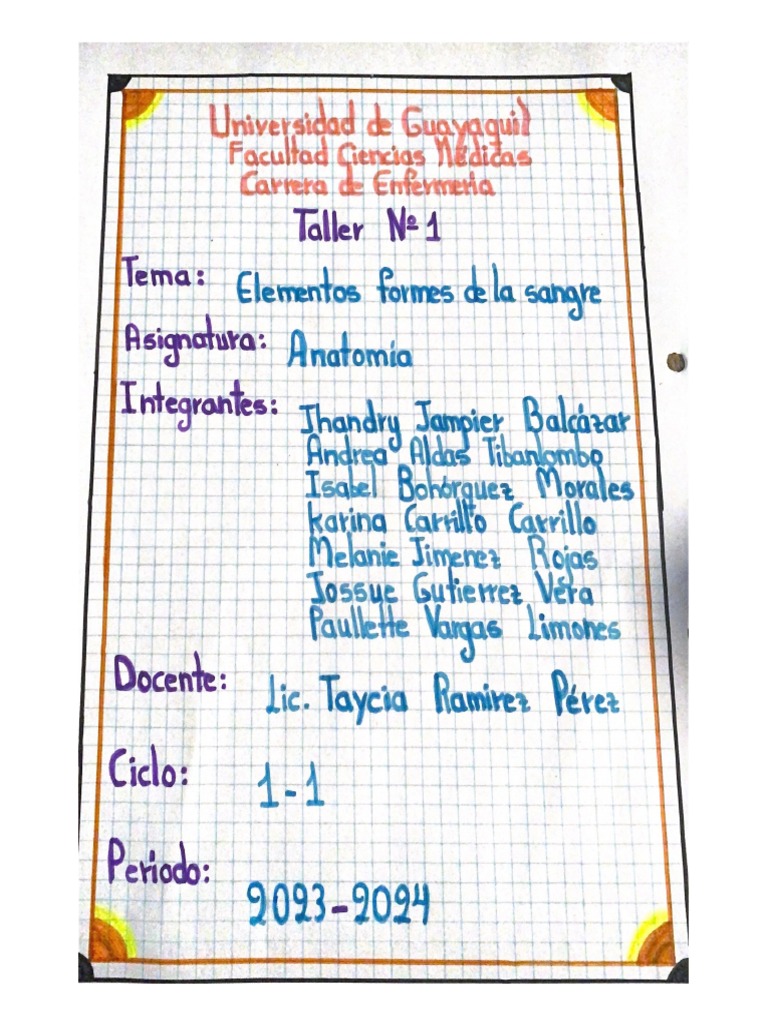 Universidad de Guayaquil
Facultad Ciencias Médicas
Carrera de Enfermeria
Taller Nº 1
Tema: Elementos formes de la sangre
Asignatura: Anatomía
Integrantes: Jhandry Jampier Balcázar
Andrea Aldas Tibanlombo
Isabel Bohórquez Morales
Karina Carrillo Carrillo
Melanie Jimenez Rojas
Jossue Gutierrez Véra
Paullette Vargas Limones
Docente: Lic. Taycia Ramirez Pérez
Ciclo: 1-1
Periodo: 2023-2024